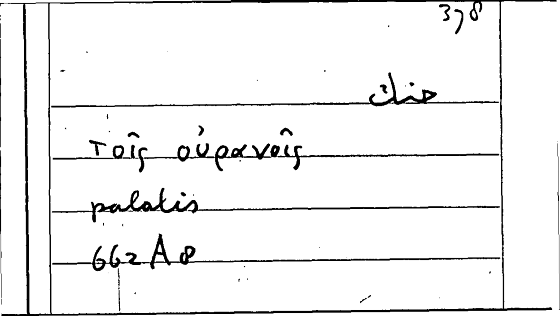 378
حنك
τοῖς οὐρανοῖς
palatis
662 A 8